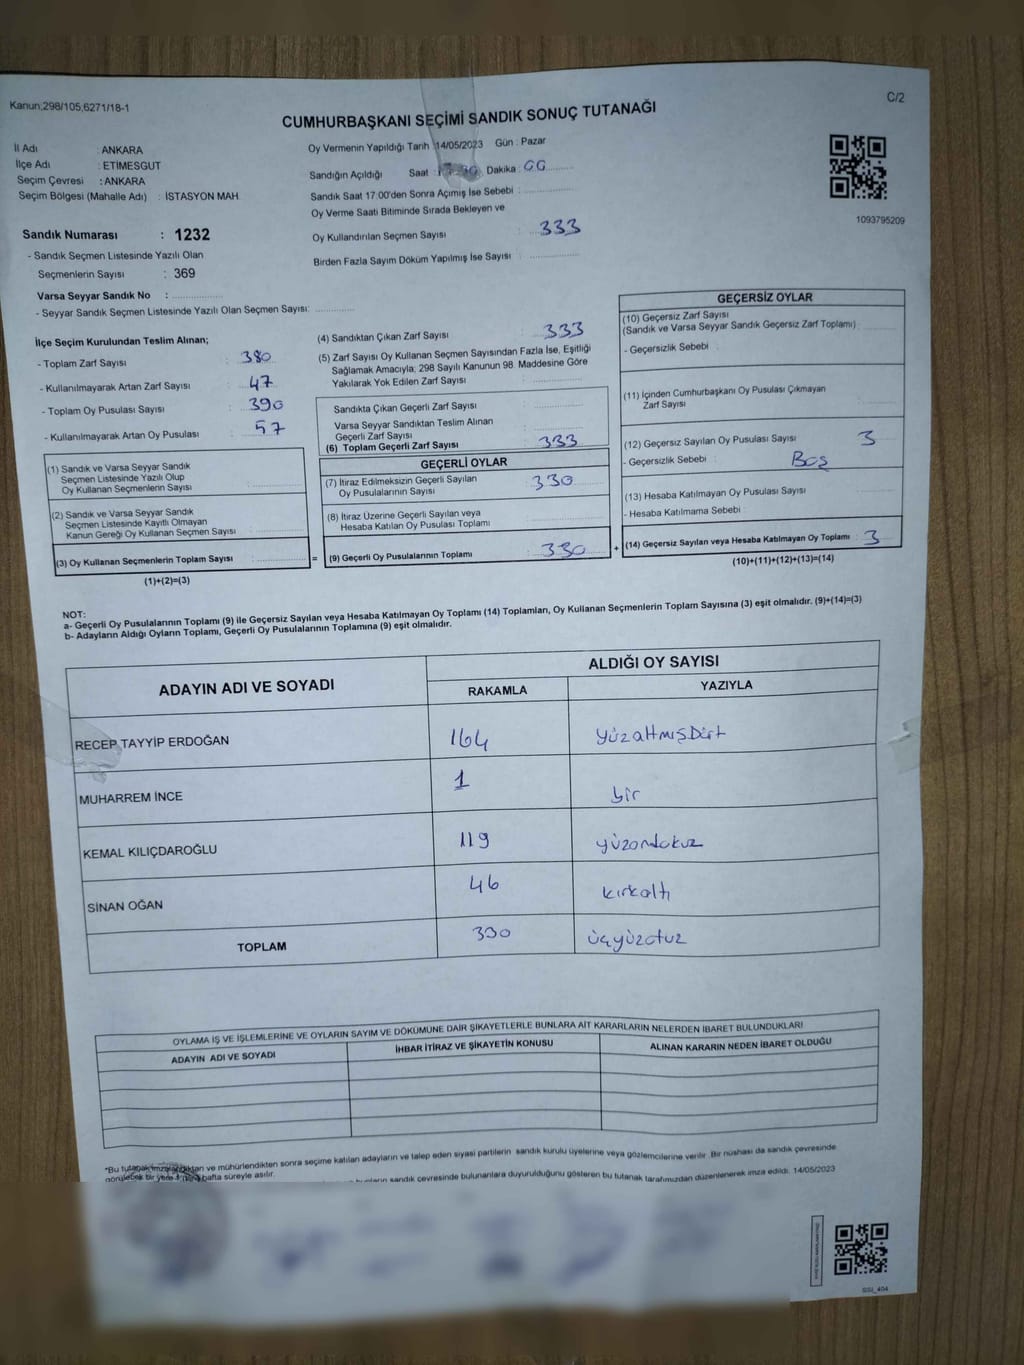 Kanun;298/105,6271/18-1
C/2
CUMHURBAŞKANI SEÇİMİ SANDIK SONUÇ TUTANAĞI
İl Adı : ANKARA
İlçe Adı : ETİMESGUT
Seçim Çevresi : ANKARA
Seçim Bölgesi (Mahalle Adı) : İSTASYON MAH.
Oy Vermenin Yapıldığı Tarih :14/05/2023 Gün : Pazar
Sandığın Açıldığı Saat : Dakika :
Sandık Saat 17.00'den Sonra Açılmış İse Sebebi :
Oy Verme Saati Bitiminde Sırada Bekleyen ve
Oy Kullandırılan Seçmen Sayısı : 333
Birden Fazla Sayım Döküm Yapılmış İse Sayısı :
1093795209
Sandık Numarası : 1232
- Sandık Seçmen Listesinde Yazılı Olan
Seçmenlerin Sayısı : 369
Varsa Seyyar Sandık No :
- Seyyar Sandık Seçmen Listesinde Yazılı Olan Seçmen Sayısı:
İlçe Seçim Kurulundan Teslim Alınan;
- Toplam Zarf Sayısı : 380
- Kullanılmayarak Artan Zarf Sayısı : 47
- Toplam Oy Pusulası Sayısı : 390
- Kullanılmayarak Artan Oy Pusulası : 57
(1) Sandık ve Varsa Seyyar Sandık
Seçmen Listesinde Yazılı Olup
Oy Kullanan Seçmenlerin Sayısı :
(2) Sandık ve Varsa Seyyar Sandık
Seçmen Listesinde Kayıtlı Olmayan
Kanun Gereği Oy Kullanan Seçmen Sayısı :
(3) Oy Kullanan Seçmenlerin Toplam Sayısı :
(1)+(2)=(3)
=
(4) Sandıktan Çıkan Zarf Sayısı : 333
(5) Zarf Sayısı Oy Kullanan Seçmen Sayısından Fazla İse, Eşitliği
Sağlamak Amacıyla; 298 Sayılı Kanunun 98. Maddesine Göre
Yakılarak Yok Edilen Zarf Sayısı :
Sandıkta Çıkan Geçerli Zarf Sayısı :
Varsa Seyyar Sandıktan Teslim Alınan
Geçerli Zarf Sayısı :
(6) Toplam Geçerli Zarf Sayısı : 333
GEÇERLİ OYLAR
(7) İtiraz Edilmeksizin Geçerli Sayılan
Oy Pusulalarının Sayısı : 330
(8) İtiraz Üzerine Geçerli Sayılan veya
Hesaba Katılan Oy Pusulası Toplamı :
(9) Geçerli Oy Pusulalarının Toplamı : 330
+
GEÇERSİZ OYLAR
(10) Geçersiz Zarf Sayısı
(Sandık ve Varsa Seyyar Sandık Geçersiz Zarf Toplamı) :
- Geçersizlik Sebebi :
(11) İçinden Cumhurbaşkanı Oy Pusulası Çıkmayan
Zarf Sayısı :
(12) Geçersiz Sayılan Oy Pusulası Sayısı : 3
- Geçersizlik Sebebi : Boş
(13) Hesaba Katılmayan Oy Pusulası Sayısı :
- Hesaba Katılmama Sebebi :
(14) Geçersiz Sayılan veya Hesaba Katılmayan Oy Toplamı : 3
(10)+(11)+(12)+(13)=(14)
NOT:
a- Geçerli Oy Pusulalarının Toplamı (9) ile Geçersiz Sayılan veya Hesaba Katılmayan Oy Toplamı (14) Toplamları, Oy Kullanan Seçmenlerin Toplam Sayısına (3) eşit olmalıdır. (9)+(14)=(3)
b- Adayların Aldığı Oyların Toplamı, Geçerli Oy Pusulalarının Toplamına (9) eşit olmalıdır.
ADAYIN ADI VE SOYADI
ALDIĞI OY SAYISI
RAKAMLA YAZIYLA
RECEP TAYYİP ERDOĞAN 164 yüzaltmışDört
MUHARREM İNCE 1 bir
KEMAL KILIÇDAROĞLU 119 yüzondokuz
SİNAN OĞAN 46 kırkaltı
TOPLAM 330 üçyüzotuz
OYLAMA İŞ VE İŞLEMLERİNE VE OYLARIN SAYIM VE DÖKÜMÜNE DAİR ŞİKAYETLERLE BUNLARA AİT KARARLARIN NELERDEN İBARET BULUNDUKLARI
ADAYIN ADI VE SOYADI İHBAR İTİRAZ VE ŞİKAYETİN KONUSU ALINAN KARARIN NEDEN İBARET OLDUĞU
*Bu tutanak imzalandıktan ve mühürlendikten sonra seçime katılan adayların ve talep eden siyasi partilerin sandık kurulu üyelerine veya gözlemcilerine verilir. Bir nüshası da sandık çevresinde
görülebilen bir yere 1 (bir) hafta süreyle asılır.
sandık çevresinde bulunanlara duyurulduğunu gösteren bu tutanak tarafımızdan düzenlenerek imza edildi. 14/05/2023
SSI_404